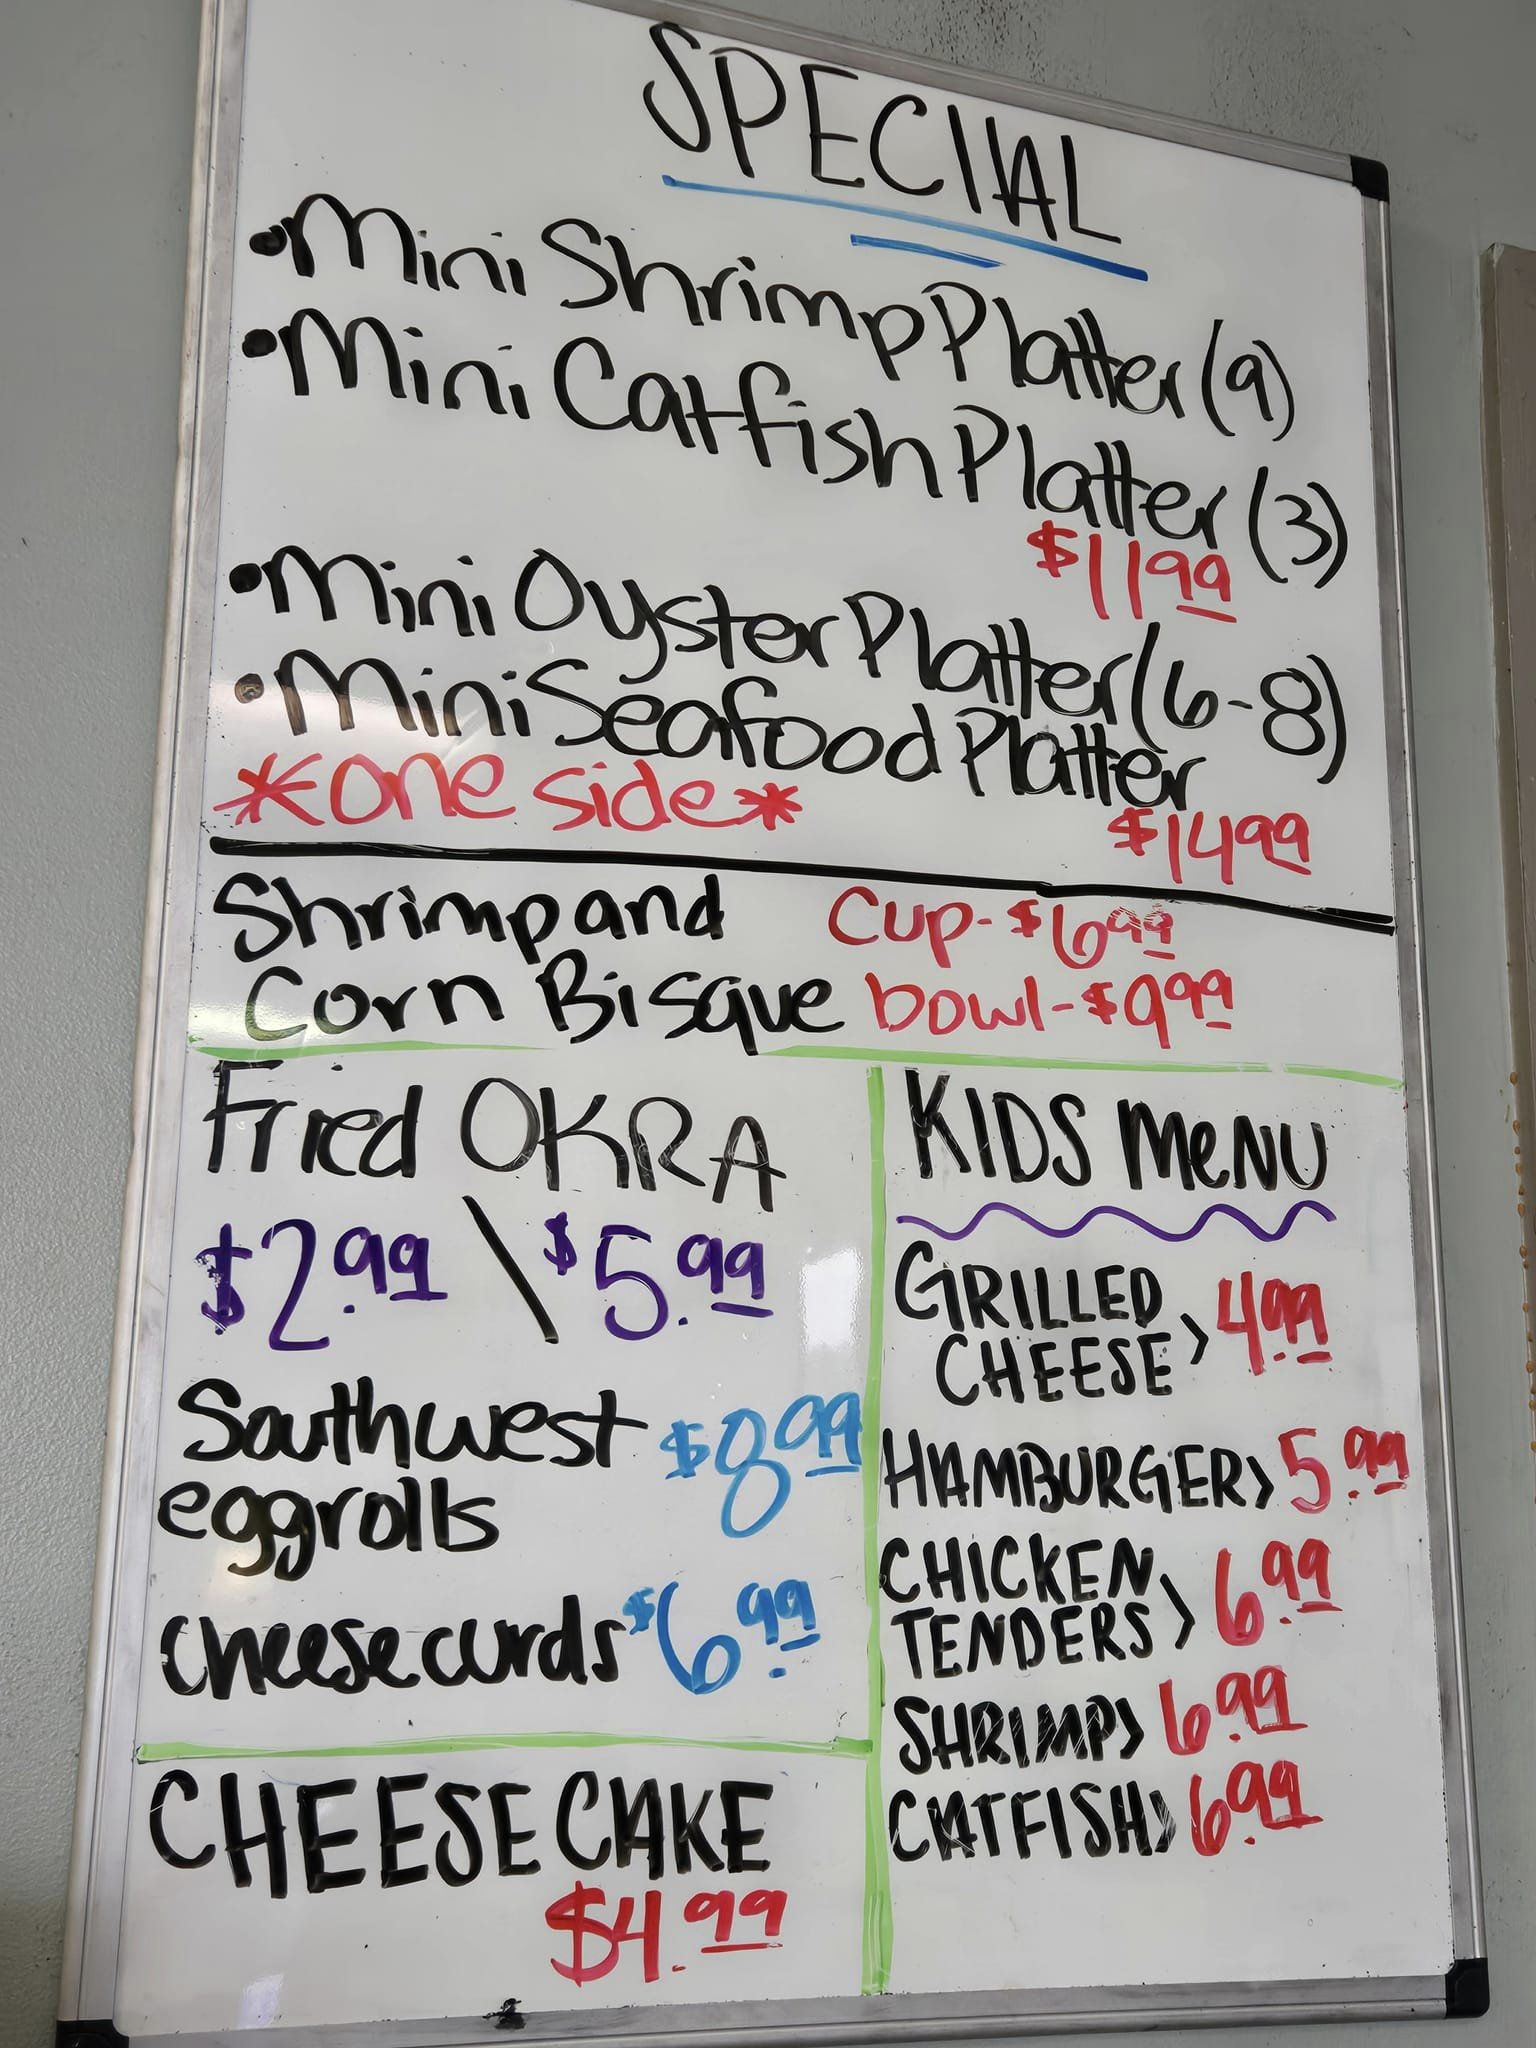 SPECIAL
• Mini Shrimp Platter (9)
• Mini Catfish Platter (3)
$11.99
• Mini Oyster Platter (6-8)
• Mini Seafood Platter
*one side*
$14.99
Shrimp and Cup-$6.99
Corn Bisque bowl-$9.99
Fried OKRA
$2.99 \ $5.99
Southwest $8.99
eggrolls
cheese curds $6.99
CHEESE CAKE
$4.99
KIDS MENU
GRILLED
CHEESE > 4.99
HAMBURGER > 5.99
CHICKEN
TENDERS > 6.99
SHRIMP > 6.99
CATFISH > 6.99